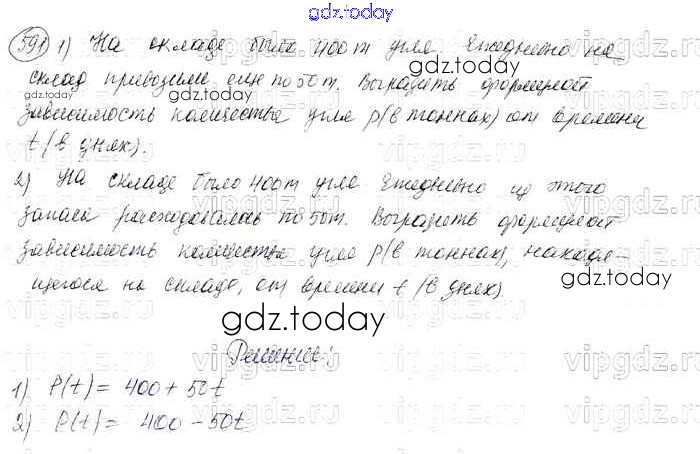 gdz.today
591 1) На складе было 400 т угля. Ежедневно на
склад привозили еще по 50 т. Выразить формулой
gdz.today
зависимость количества угля p (в тоннах) от времени
t (в днях).
2) На складе было 400 т угля. Ежедневно из этого
запаса расходовалось по 50 т. Выразить формулой
зависимость количества угля p (в тоннах), находя-
щегося на складе, от времени t (в днях).
gdz.today
gdz.today
Решение:
1) P(t) = 400 + 50t
2) P(t) = 400 - 50t